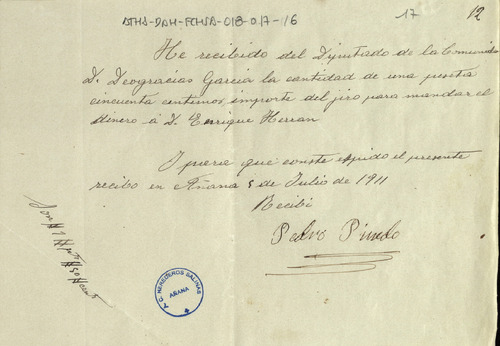 ATHA-DAH-FCMSA-018-017-16
17
12
He recibido del Diputado de la Comunidad
D. Deogracias Garcia la cantidad de una peseta
cincuenta centimos importe del jiro para mandar el
dinero á D. Enrique Herran
I para que conste espido el presente
recibo en Añana 5 de Julio de 1911
Recibi
Pedro Pinedo
Son # 1 # pta # 50 # cent
T. C. HEREDEROS SALINAS
AÑANA